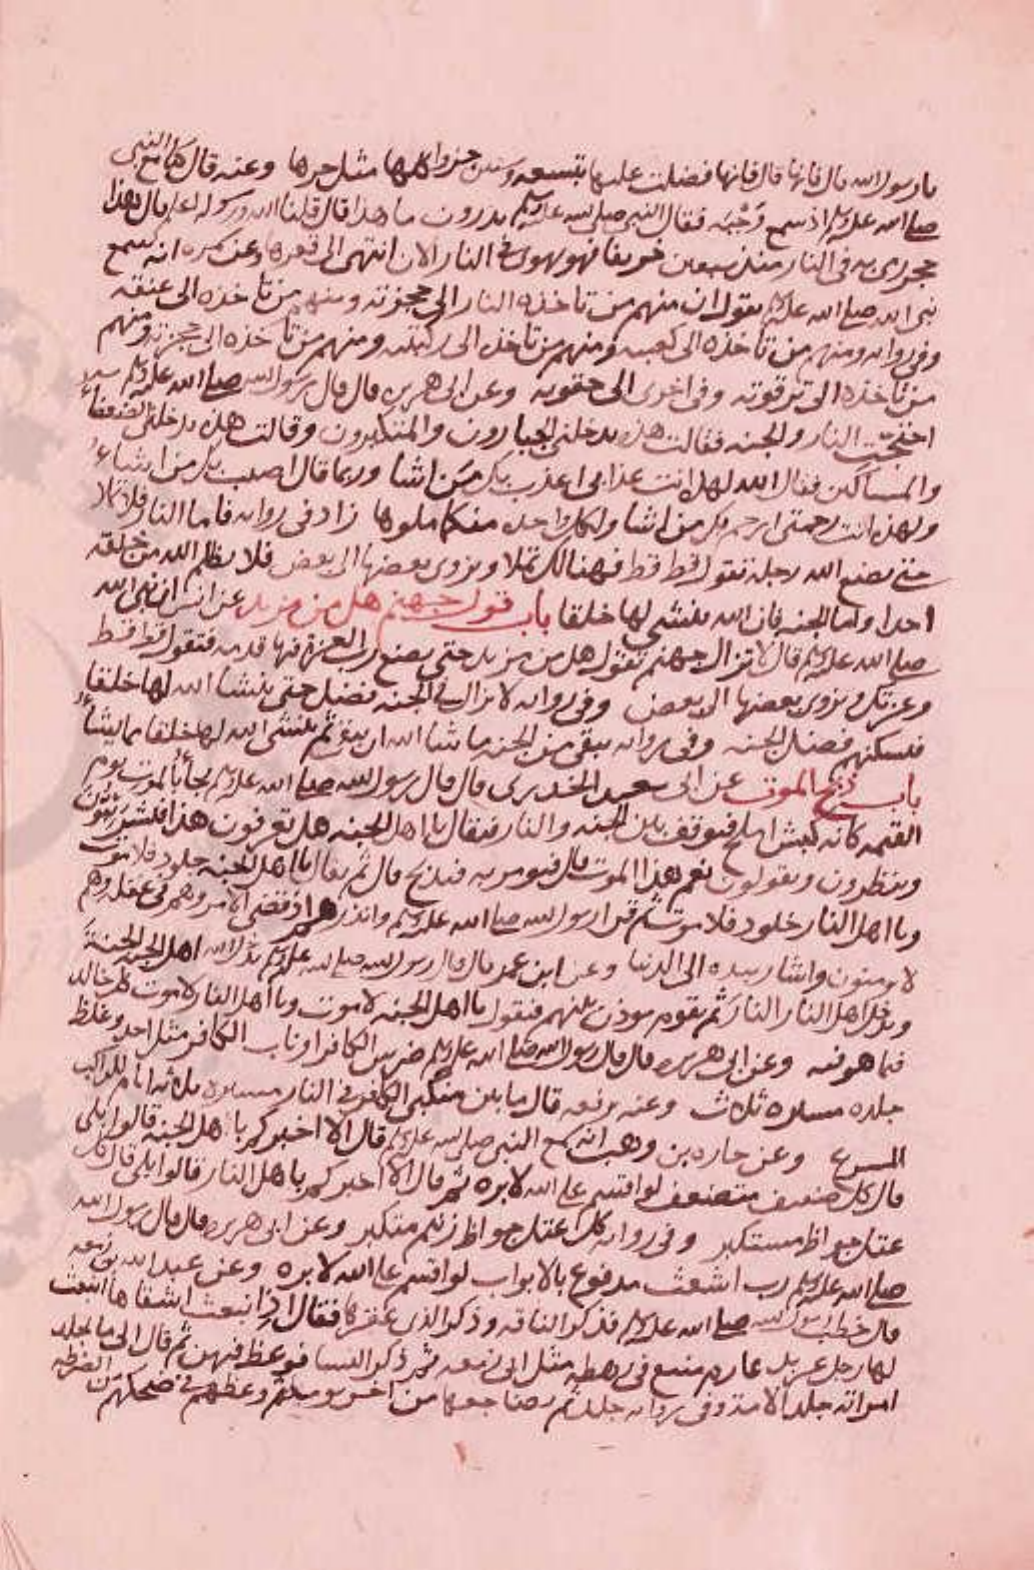 يا رسول الله قال فانها قال فانها فضلت عليها بتسعه وستين جزوا كلها مثل حرها وعنه قال كنا مع النبي
صلى الله عليه وسلم اذ سمع وَجْبَه فقال النبي صلى الله عليه وسلم تدرون ما هذا قال قلنا الله ورسوله اعلم قال هذا
حجر رمي به في النار منذ سبعين خريفا فهو يهوي في النار الان انتهى الى قعرها وعن سمره انه سمع
نبي الله صلى الله عليه وسلم يقول ان منهم من تاخذه النار الى حجزته ومنهم من تاخذه الى عنقه
وفي روايه ومنهم من تاخذه الى كعبيه ومنهم من تاخذه الى ركبتيه ومنهم من تاخذه الى حجزته ومنهم
من تاخذه الى ترقوته وفي اخرى الى حقويه وعن ابي هريره قال قال رسول الله صلى الله عليه وسلم
احتجت النار والجنه فقالت هذه يدخلني الجبارون والمتكبرون وقالت هذه يدخلني الضعفاء
والمساكين فقال الله لهذه انت عذابي اعذب بك من اشا وربما قال اصيب بك من اشاء
ولهذه انت رحمتي ارحم بك من اشا ولكل واحده منكما ملوها زاد في روايه فاما النار فلا تملا
حتى يضع الله رجله تقول قط قط فهنالك تملا ويزوى بعضها الى بعض فلا يظلم الله من خلقه
احدا واما الجنه فان الله ينشي لها خلقا باب قول جهنم هل من مزيد عن انس ان نبي الله
صلى الله عليه وسلم قال لا تزال جهنم تقول هل من مزيد حتى يضع رب العزة فيها قدمه فتقول قط قط
وعزتك ويزوى بعضها الى بعض وفي روايه لا يزال في الجنه فضل حتى ينشا الله لها خلقا
فيسكنهم فضل الجنه وفي روايه يبقى من الجنه ما شا الله ان يبقى ثم ينشي الله لها خلقا مما يشاء
باب ذبح الموت عن ابي سعيد الخدري قال قال رسول الله صلى الله عليه وسلم يجاء بالموت يوم
القيمه كانه كبش املح فيوقف بين الجنه والنار فيقال يا اهل الجنه هل تعرفون هذا فيشرئبون
وينظرون ويقولون نعم هذا الموت قال فيومر به فيذبح قال ثم يقال يا اهل الجنه خلود فلا موت
ويا اهل النار خلود فلا موت ثم قرا رسول الله صلى الله عليه وسلم وانذرهم اذ قضي الامر وهم في غفله وهم
لا يومنون واشار بيده الى الدنيا وعن ابن عمر قال قال رسول الله صلى الله عليه وسلم يدخل الله اهل الجنه الجنة
ويدخل اهل النار النار ثم يقوم موذن بينهم فيقول يا اهل الجنه لا موت ويا اهل النار لا موت كل خالد
فيما هو فيه وعن ابي هريره قال قال رسول الله صلى الله عليه وسلم ضرس الكافر او ناب الكافر مثل احد وغلظ
جلده مسيره ثلاث وعنه يرفعه قال ما بين منكبي الكافر في النار مسيره ثلاثه ايام للراكب
المسرع وعن حارثه بن وهب انه سمع النبي صلى الله عليه وسلم قال الا اخبركم باهل الجنه قالوا بلى
قال كل ضعيف متضعف لو اقسم على الله لابره ثم قال الا اخبركم باهل النار قالوا بلى قال كل
عتل جواظ مستكبر وفي روايه كل عتل جواظ زنيم متكبر وعن ابي هريره قال قال رسول الله
صلى الله عليه وسلم رب اشعث مدفوع بالابواب لو اقسم على الله لابره وعن عبد الله بن زمعه
قال خطب رسول الله صلى الله عليه وسلم فذكر الناقه وذكر الذي عقرها فقال اذ انبعث اشقاها انبعث
لها رجل عزيز عارم منيع في رهطه مثل ابي زمعه ثم ذكر النسا فوعظ فيهن ثم قال الى ما يجلد
امراته جلد الامه وفي روايه جلد ثم يضاجعها من اخر يومه ثم وعظهم في ضحكهم من الضرطه